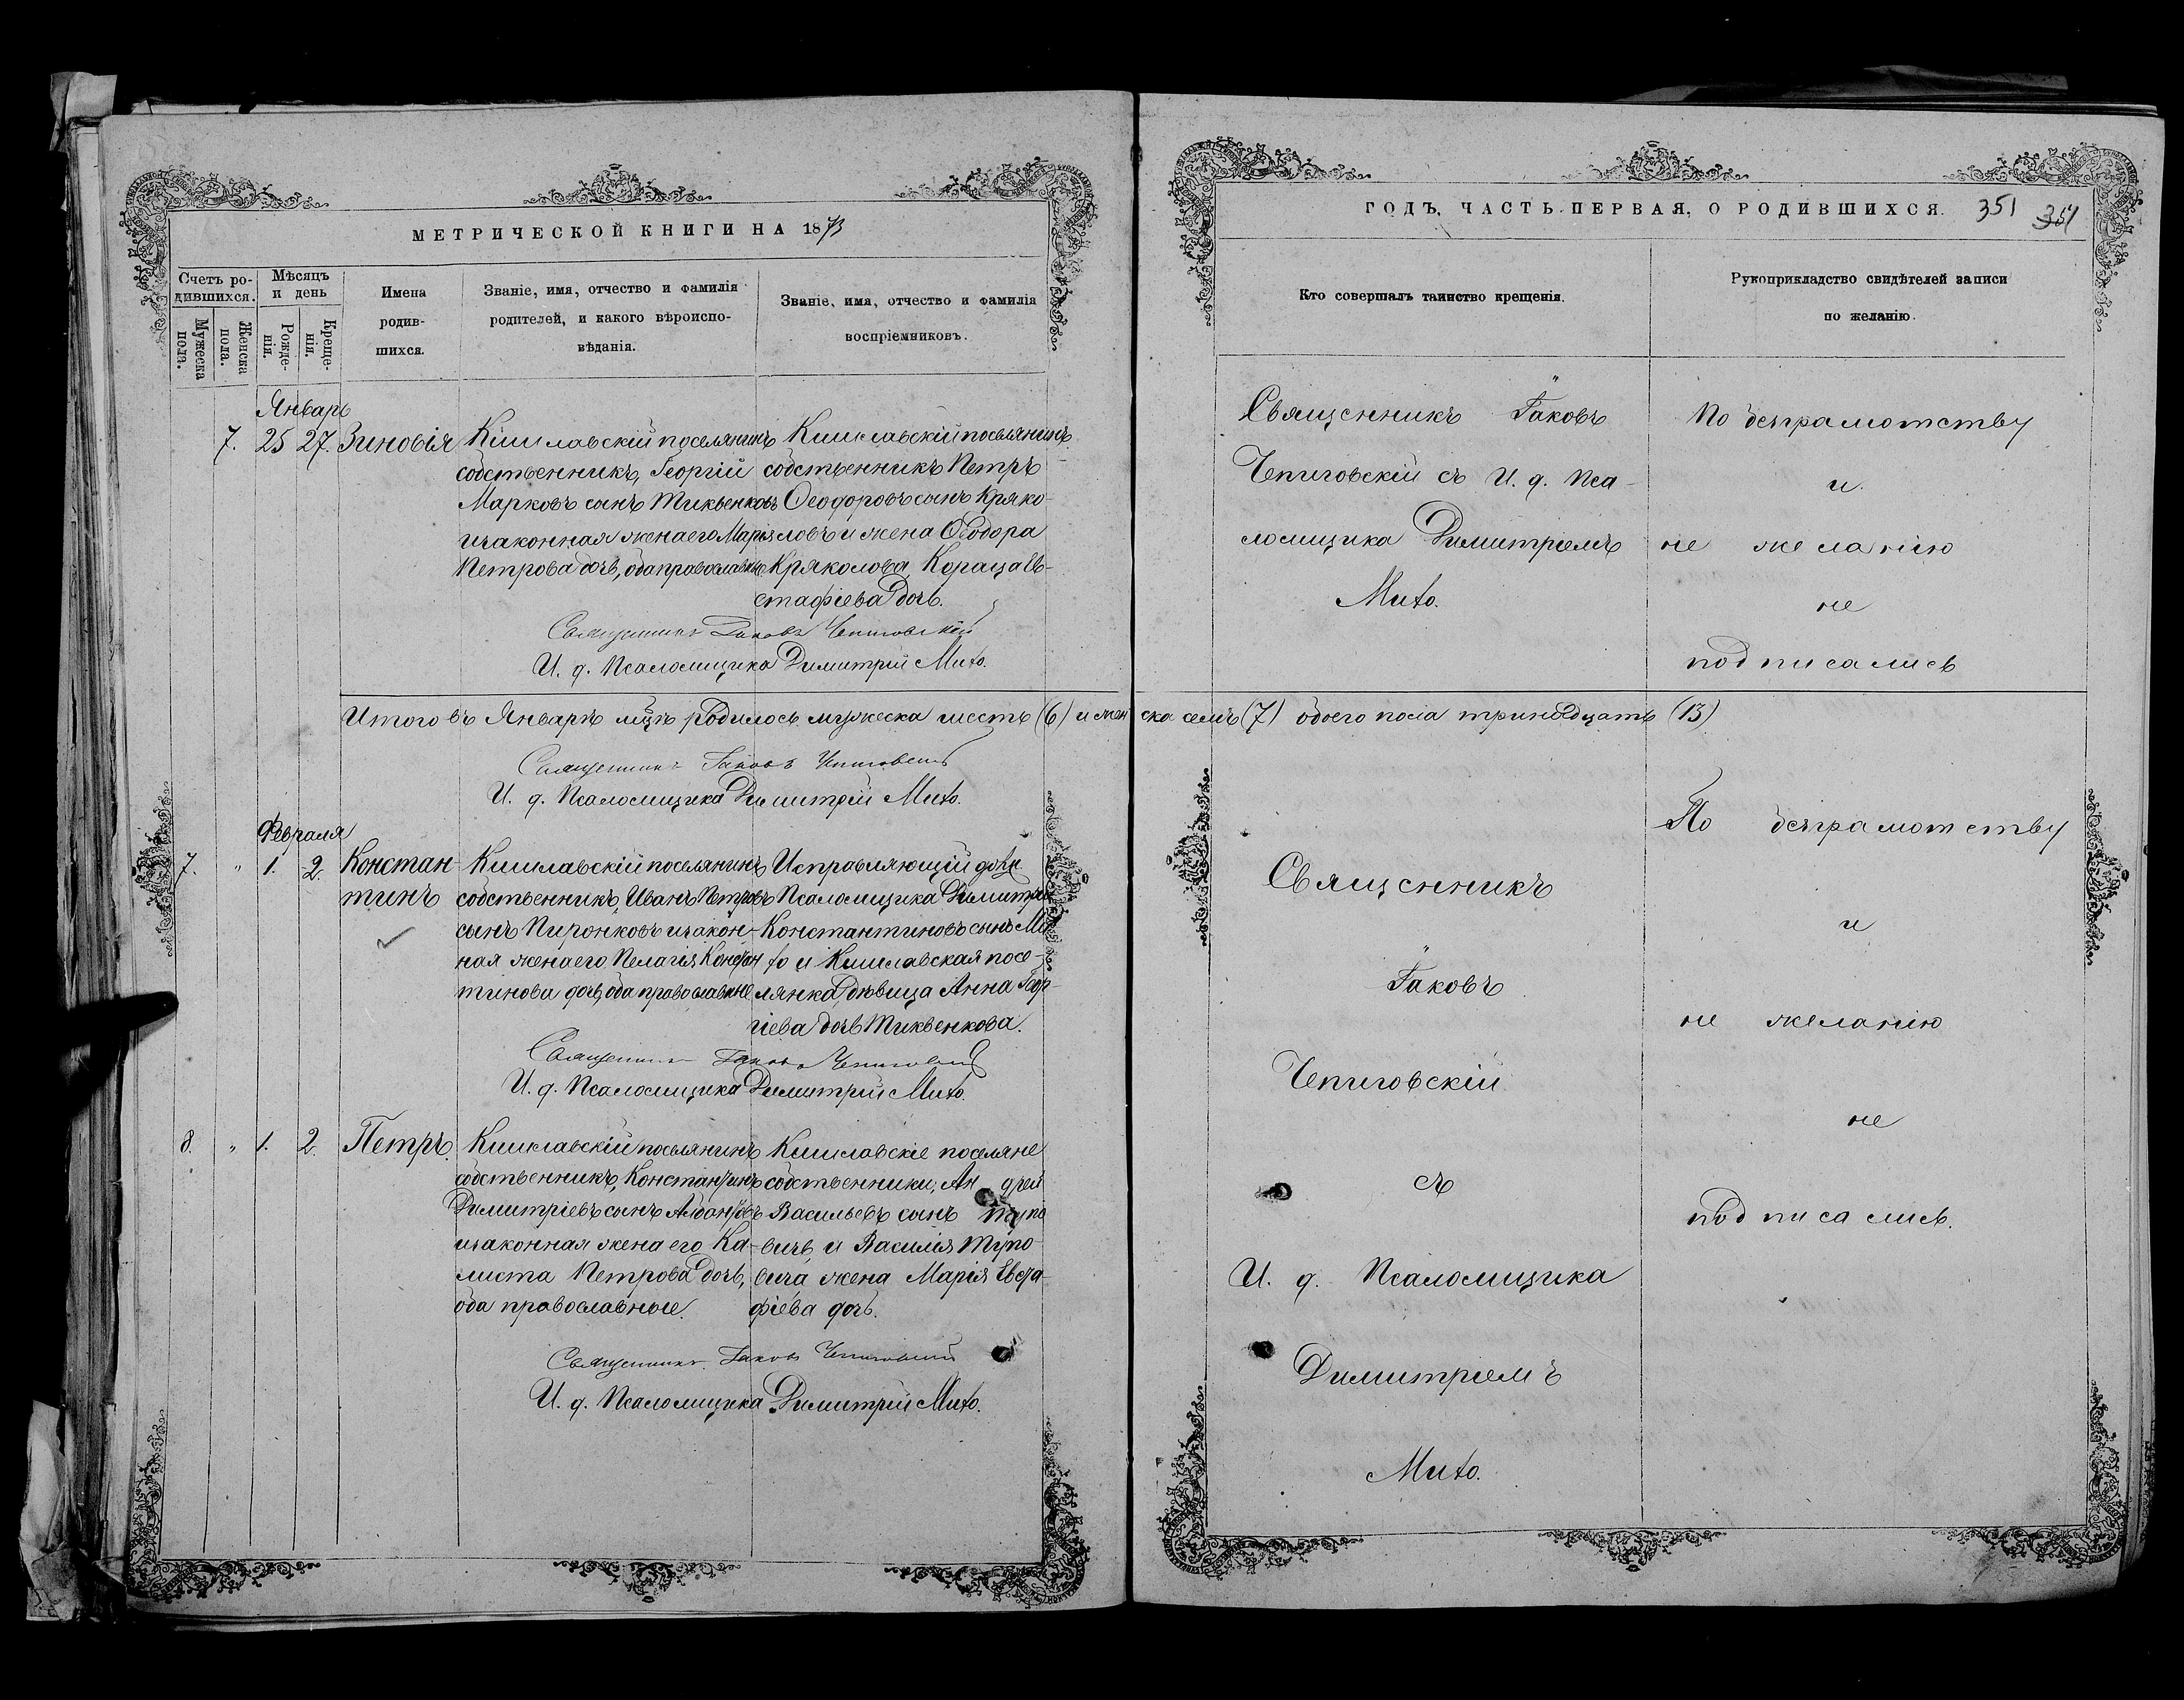 МЕТРИЧЕСКОЙ КНИГИ НА 1873
Счетъ ро-
дившихся.
Мужеска
пола.
Женска
пола.
Мѣсяцъ
и день
Рожде-
нія.
Креще-
нія.
Имена
родив-
шихся.
Званіе, имя, отчество и фамилія
родителей, и какого вѣроиспо-
вѣданія.
Званіе, имя, отчество и фамилія
воспріемниковъ.
Январь
7. 25 27. Зиновія
Кишлавскій поселянинъ
собственникъ, Георгій
Марковъ сынъ Тиквенковъ
и законная жена его Марія
Петрова дочь, оба православные
Кишлавскій поселянинъ
собственникъ Петръ
Ѳеодоровъ сынъ Кряко-
ловъ и жена Ѳеодора
Кряколова, Ев-
стафіева дочь.
Священникъ Іаковъ Чепиговскій
И. д. Псаломщика Димитрій Мито.
Итого въ Январѣ мцѣ родилось мужеска шесть (6) и женска семь (7) обоего пола тринадцать (13)
Священникъ Іаковъ Чепиговскій
И. д. Псаломщика Димитрій Мито.
Февраля
7. " 1. 2. Констан-
тинъ
Кишлавскій поселянинъ
собственникъ, Иванъ Петровъ
сынъ Пиронковъ и закон-
ная жена его Пелагія Констан
тинова дочь, оба православные
Исправляющій долж
Псаломщика Димитрій
Константиновъ сынъ Ми
то и Кишлавская посе-
лянка, дѣвица Анна Геор-
гіева дочь Тиквенкова.
Священникъ Іаковъ Чепиговскій
И. д. Псаломщика Димитрій Мито.
8. " 1. 2. Петръ.
Кишлавскій поселянинъ
собственникъ, Константинъ
Димитріевъ сынъ
и законная жена его Ка-
листа Петрова дочь,
оба православные.
Кишлавскіе поселяне
собственники, Андрей
Васильевъ сынъ
и Василія
жена Марія Евста-
фіева дочь.
Священникъ Іаковъ Чепиговскій
И. д. Псаломщика Димитрій Мито.
ГОДЪ, ЧАСТЬ ПЕРВАЯ, О РОДИВШИХСЯ. 351 351
Кто совершалъ таинство крещенія.
Рукоприкладство свидѣтелей записи
по желанію.
Священникъ Іаковъ
Чепиговскій съ И. д. Пса-
ломщика Димитріемъ
Мито.
По безграмотству
и
не желанію
не
подписались
Священникъ
Іаковъ
Чепиговскій
съ
И. д. Псаломщика
Димитріемъ
Мито.
По безграмотству
и
не желанію
не
подписались.